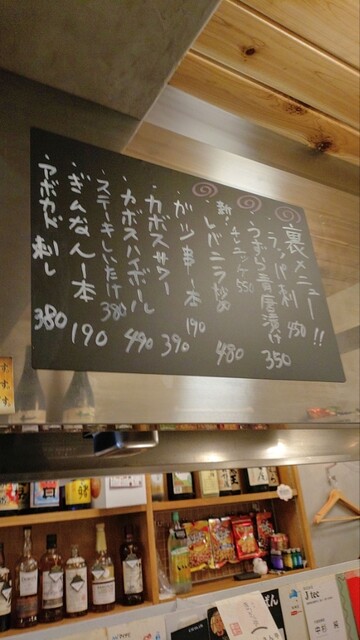 裏メニュー!!
ラッパ刺 450
うずら青唐漬け 350
チャンジャ 550
新!レバニラ炒め 480
ガツ串一本 190
カボスサワー 390
カボスハイボール 490
ステーキしいたけ 380
ぎんなん一本 190
アボカド刺し 380
J tec